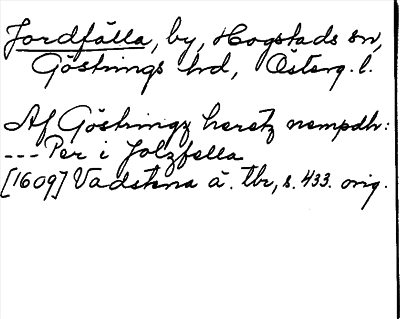 Jordfälla, by, Hogstads sn,
Göstrings hd, Österg. l.
Af Göstringz heretz nempdh:
--- Per i Jolzfella
[1609] Vadstena ä. tbr, s. 433. orig.